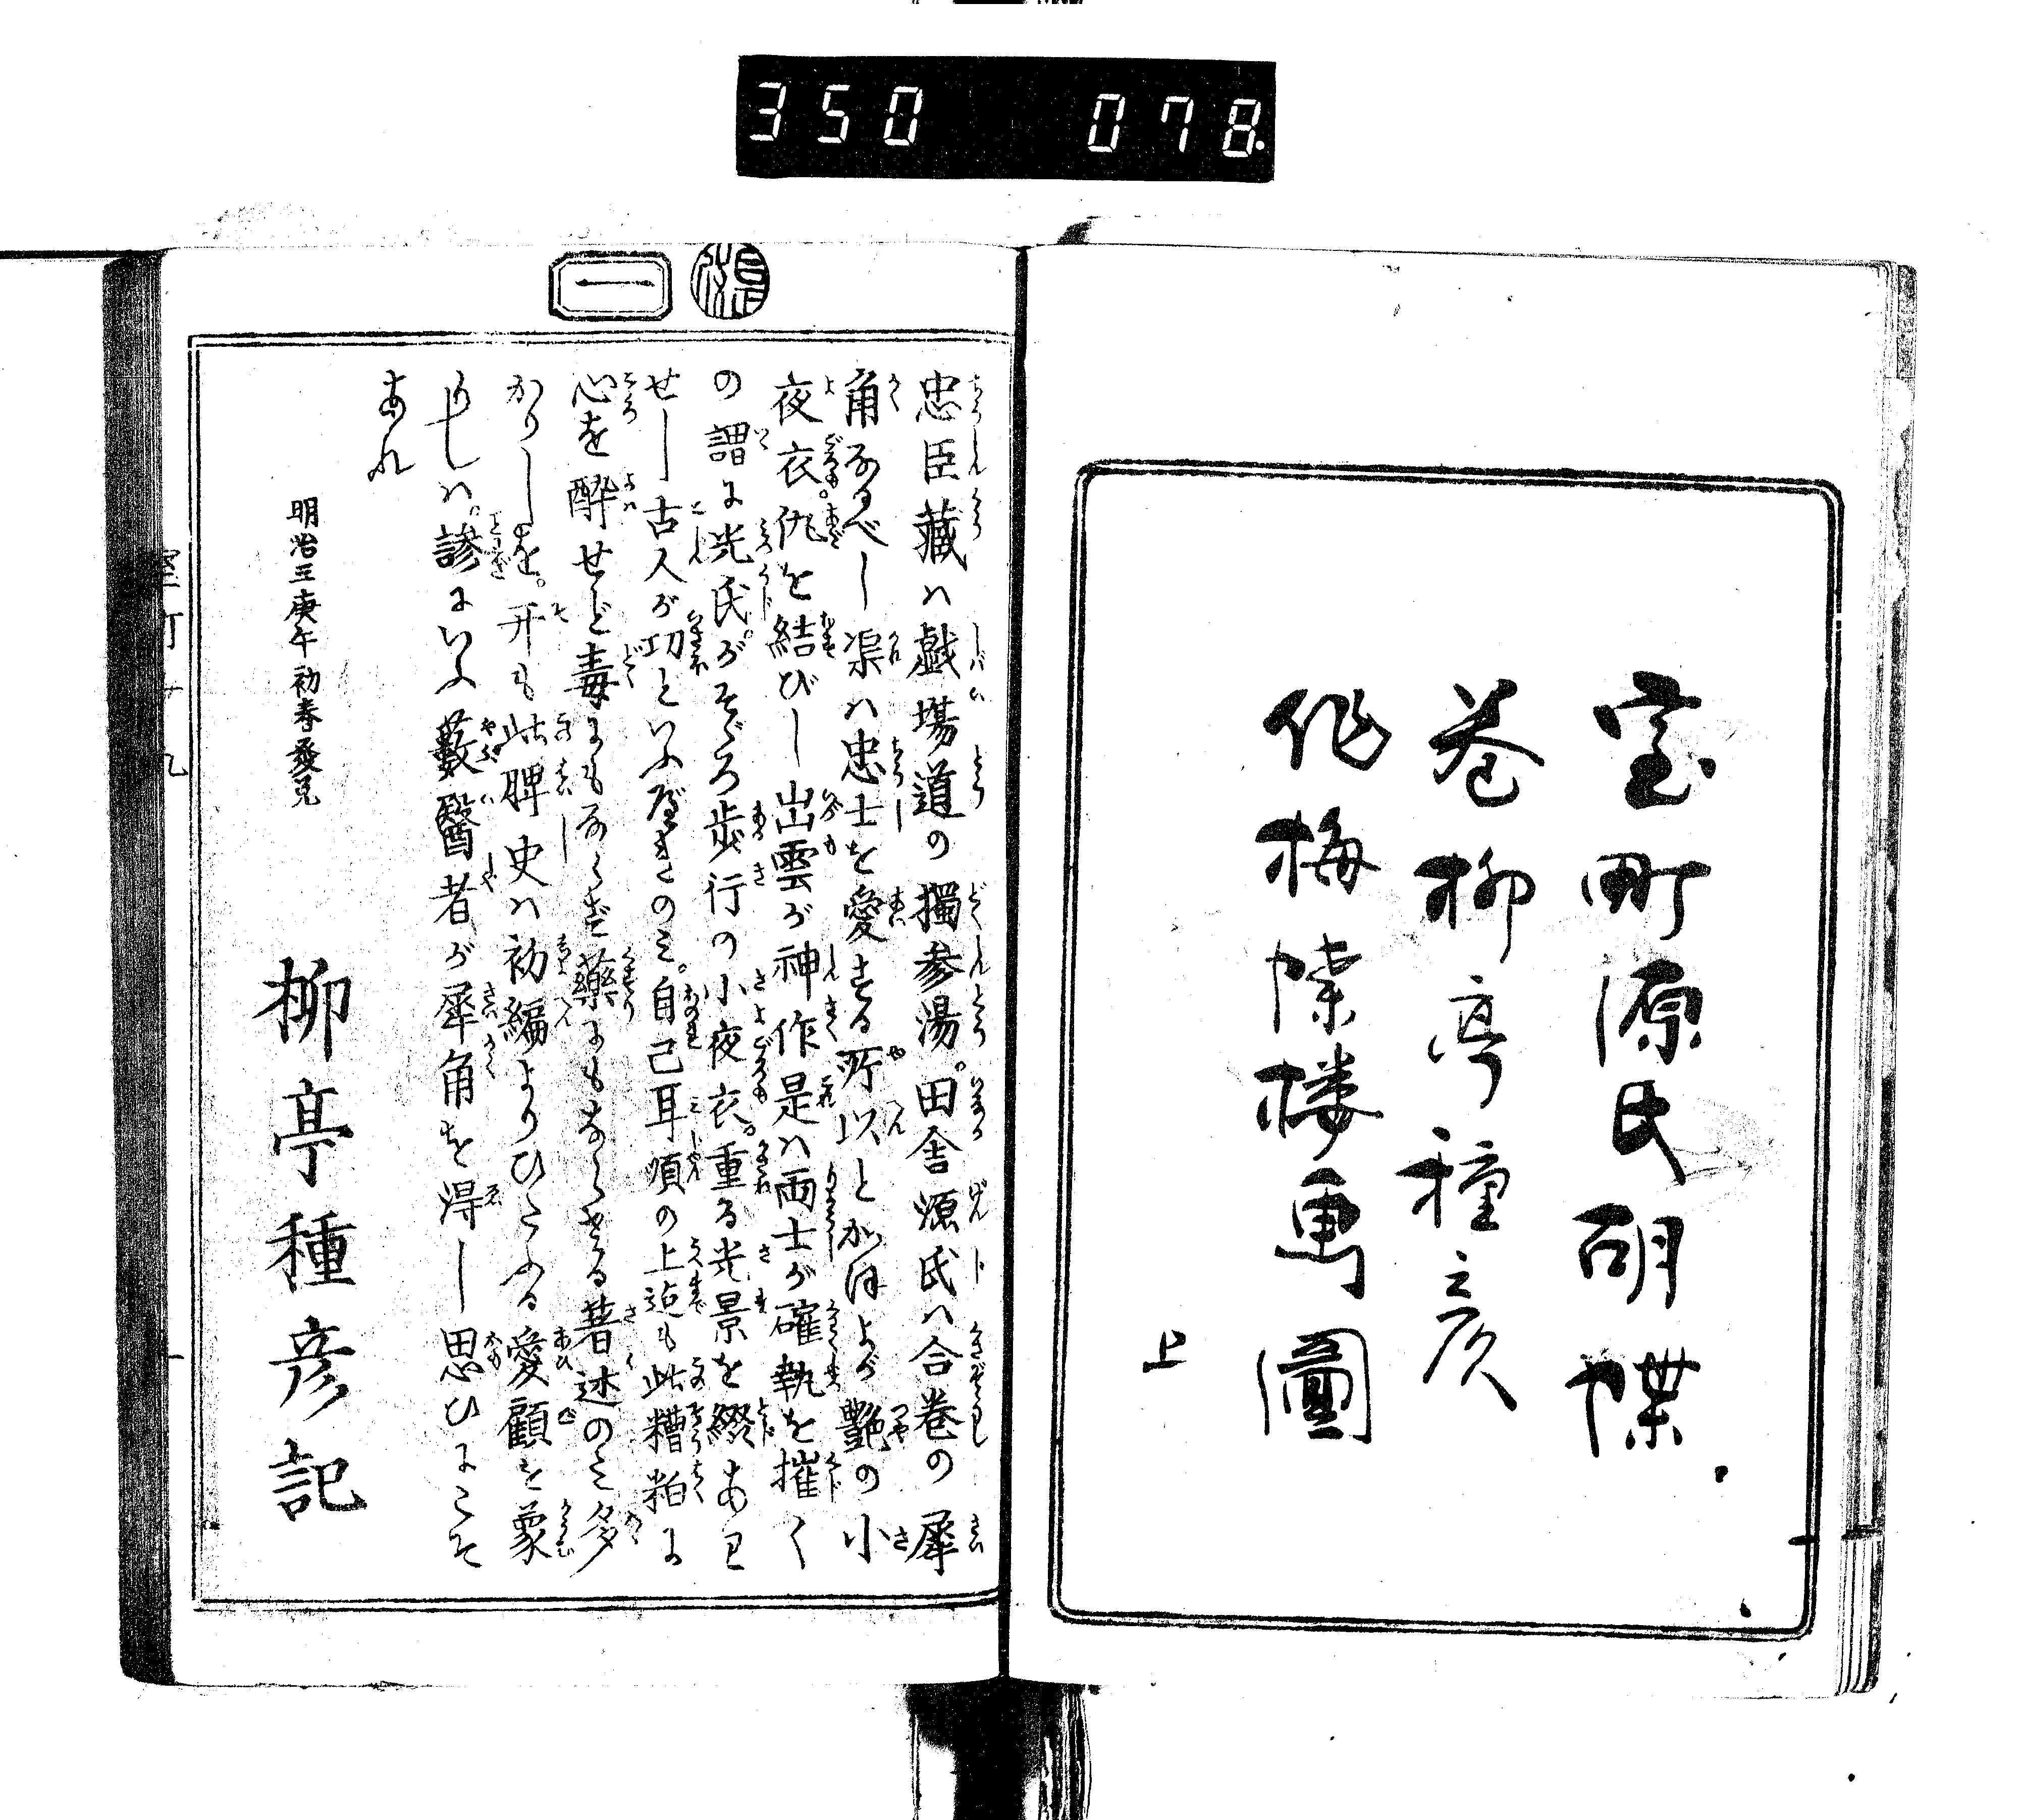 350 078
室町源氏胡蝶
巻柳亭種彦
作梅蝶楼画圖
上
一
忠臣藏ハ戯場道の獨参湯。田舎源氏ハ合巻の犀
角なるべし渠ハ忠士を愛する所以とかほよが艶の小
夜衣仇を結びし出雲が神作是ハ両士が確執を摧く
の謂に光氏がそゞろ歩行の小夜衣。重る光景を綴あり
せし古人が功といふべきのミ。自己耳順の上迄も此糟粕に
心を酔せど毒にもならず藥にもならざる著述のミ多
かりしを。开も此稗史ハ初編よりひたふる愛顧を蒙
りしハ。諺にいふ藪醫者が犀角を得し思ひにこそ
あれ
明治三庚午初春發兌
柳亭種彦記